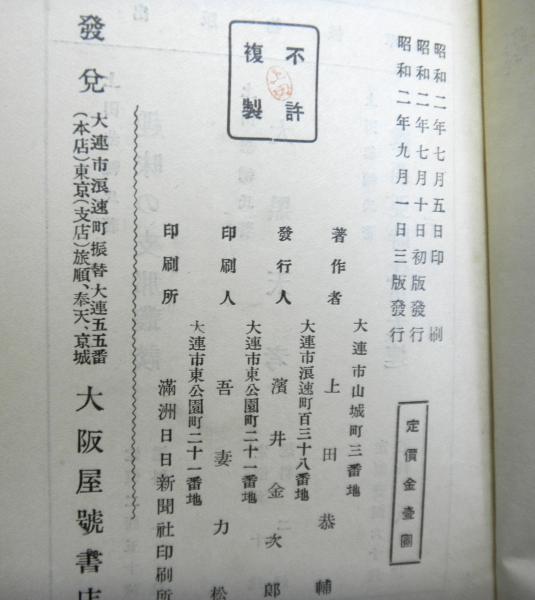 昭和二年七月五日印刷
昭和二年七月十日初版發行
昭和二年九月一日三版發行
定價金壹圓
不許
複製
大連市山城町三番地
著作者 上田恭輔
大連市浪速町百三十八番地
發行人 濱井金次郎
大連市東公園町二十一番地
印刷人 吾妻力松
大連市東公園町二十一番地
印刷所 滿洲日日新聞社印刷所
發兌 大連市浪速町振替大連五五番
(本店)東京(支店)旅順、奉天、京城
大阪屋號書店